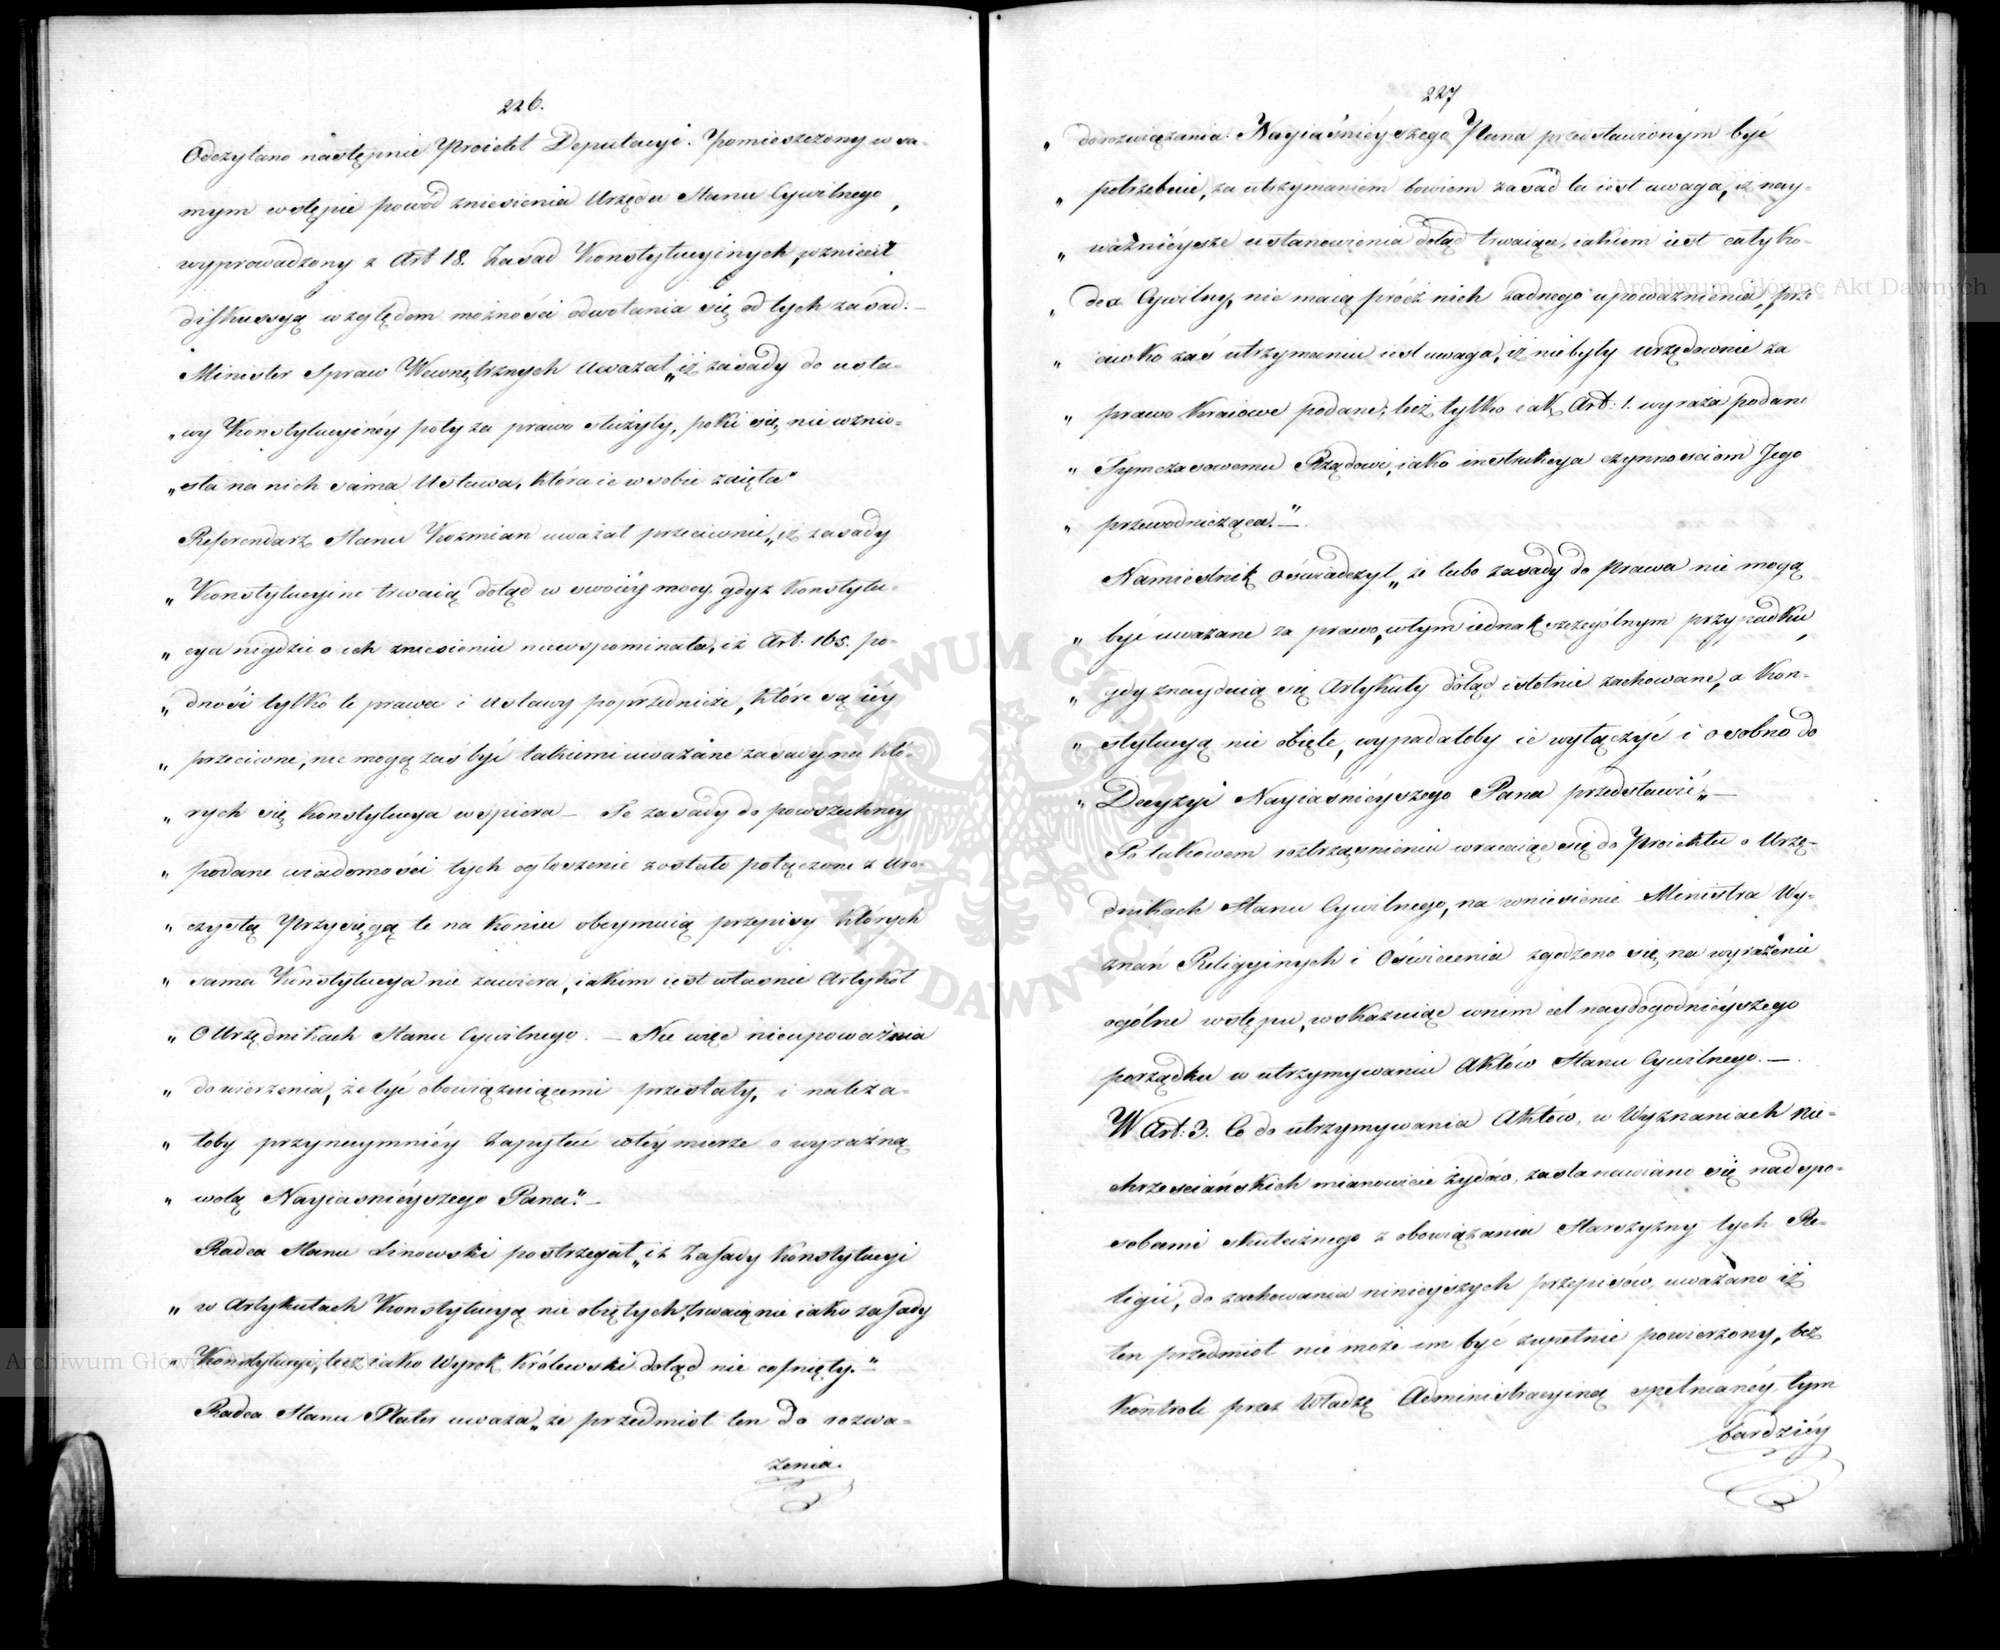 226.
Odczytano następnie Proiekt Deputacyi. Pomieszczony w sa-
mym wstępie powód zniesienia Urzędu Stanu Cywilnego,
wyprowadzony z Art 18. Zasad Konstytucyinych, wzniecił
diskussyą względem możności odwołania się od tych zasad: —
Minister Spraw Wewnętrznych uważał „iż zasady do usta-
„wy Konstytucyinéy poty za prawo służyły, poki się nie wznio-
„sła na nich sama Ustawa, która ie w sobie zaięła"
Referendarz Stanu Kozmian uważał przeciwnie „iż zasady
„Konstytucyine trwaią dotąd w swoiéy mocy, gdyż Konstytu-
„cya nigdzie o ich zniesieniu niewspominała, iż Art: 165. po-
„dnosi tylko te prawa i Ustawy poprzednicze, które są iéy
„przeciwne, nie mogą zaś być takiemi uważane zasady na któ-
„rych się Konstytucya wspiera — Te zasady do powszechney
„podane wiadomości tych ogłoszenie zostało połączone z Uro-
„czystą Przysięgą te na koniec obeymuią przepisy których
„sama Konstytucya nie zawiera, iakim iest własnie Artykół
„O Urzędnikach Stanu Cywilnego. — Nic więc nieupoważnia
„do wierzenia, że być obowiązuiącemi przestały, i należa-
„łoby przynaymniéy Zapytać w téy mierze o wyraźną
„wolą Nayiaśniéyszego Pana." —
Radca Stanu Linowski postrzegał „iż Zasady Konstytucyi
„w Artykułach Konstytucyą nie obiętych, trwaią nie iako zasady
„Konstytucyi, lecz iako Wyrok Królewski dotąd nie cofnięty." —
Radca Stanu Plater uważa „że przedmiot ten do rozwa-
żenia.
227
„do rozwiązania Nayiaśniéyszego Pana przedstawionym być
„potrzebuie, za utrzymaniem bowiem zasad ta iest uwaga, iż nay-
„ważniéysze ustanowienia dotąd trwaiące, iakiem iest cały Ko-
„dex Cywilny, nie maią prócz nich żadnego upoważnienia, prze-
„ciwko zaś utrzymaniu iest uwaga, iż nie były urzędownie za
„prawo Kraiowe podane, lecz tylko iak Art: 1. wyraża podane
„Tymczasowemu Rządowi, iako instrukcya czynnościom Jego
„przewodnicząca." —
Namiestnik oświadczył „że lubo zasady do prawa nie mogą
„być uważane za prawo, w tym iednak szczególnym przypadku,
„gdy znayduią się Artykuły dotąd istotnie zachowane, a Kon-
„stytucyą nie obięte, wypadałoby ie wyłączyć i osobno do
„Decyzyi Nayiaśniéyszego Pana przedstawić„ —
Po takowem roztrząśnieniu wracaiąc się do Proiektu o Urzę-
dnikach Stanu Cywilnego, na wniesienie Ministra Wy-
znań Religyinych i Oświecenia zgodzono się na wyrażenie
ogólne wstępu, wskazuiąc w nim cel naydogodniéyszego
porządku w utrzymywaniu Aktów Stanu Cywilnego. —
W Art: 3. Co do utrzymywania Aktów, w Wyznaniach nie-
chrześciańskich mianowicie żydów, zastanawiano się nad spo-
sobami skutecznego z obowiązania Starszyzny tych Re-
ligii, do zachowania ninieyszych przepisów, uważano iż
ten przedmiot nie może im być zupełnie powierzony, bez
Kontroli przez Władzę Administracyiną spełnianéy, tym
bardziéy
Archiwum Główne Akt Dawnych